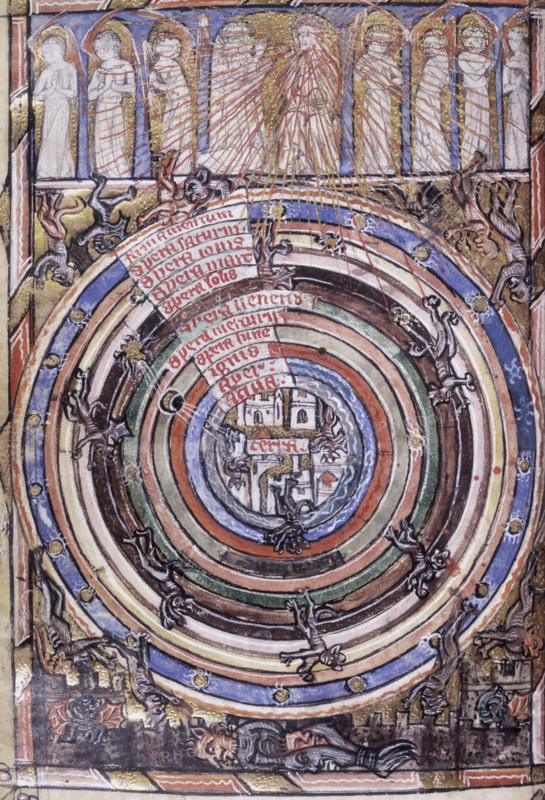 Spera saturni
Spera iouis
Spera mart
Spera solis
Spera ueneris
Spera mercurij
Spera lune
ignis
aer:
aqua:
terra.